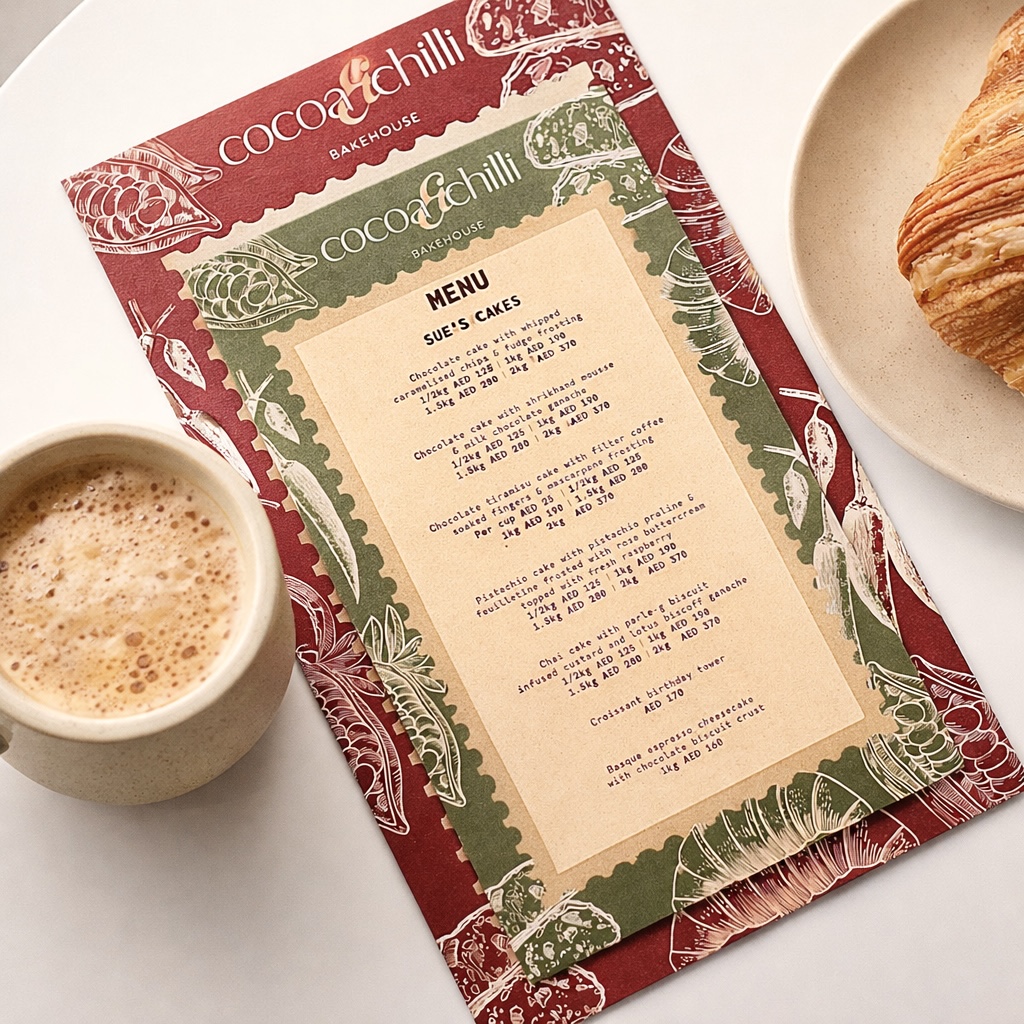 cocoa&chilli
BAKEHOUSE
cocoa&chilli
BAKEHOUSE
MENU
SUE'S CAKES
Chocolate cake with whipped
caramelised chips & fudge frosting
1/2kg AED 125 | 1kg AED 190
1.5kg AED 280 | 2kg AED 370
Chocolate cake with shrikhand mousse
& milk chocolate ganache
1/2kg AED 125 | 1kg AED 190
1.5kg AED 280 | 2kg AED 370
Chocolate tiramisu cake with filter coffee
soaked fingers & mascarpone frosting
Per cup AED 25 | 1/2kg AED 125
1kg AED 190 | 1.5kg AED 280
2kg AED 370
Pistachio cake with pistachio praline &
feuilletine frosted with rose buttercream
topped with fresh raspberry
1/2kg AED 125 | 1kg AED 190
1.5kg AED 280 | 2kg AED 370
Chai cake with parle-g biscuit
infused custard and lotus biscoff ganache
1/2kg AED 125 | 1kg AED 190
1.5kg AED 280 | 2kg AED 370
Croissant birthday tower
AED 170
Basque espresso cheesecake
with chocolate biscuit crust
1kg AED 160